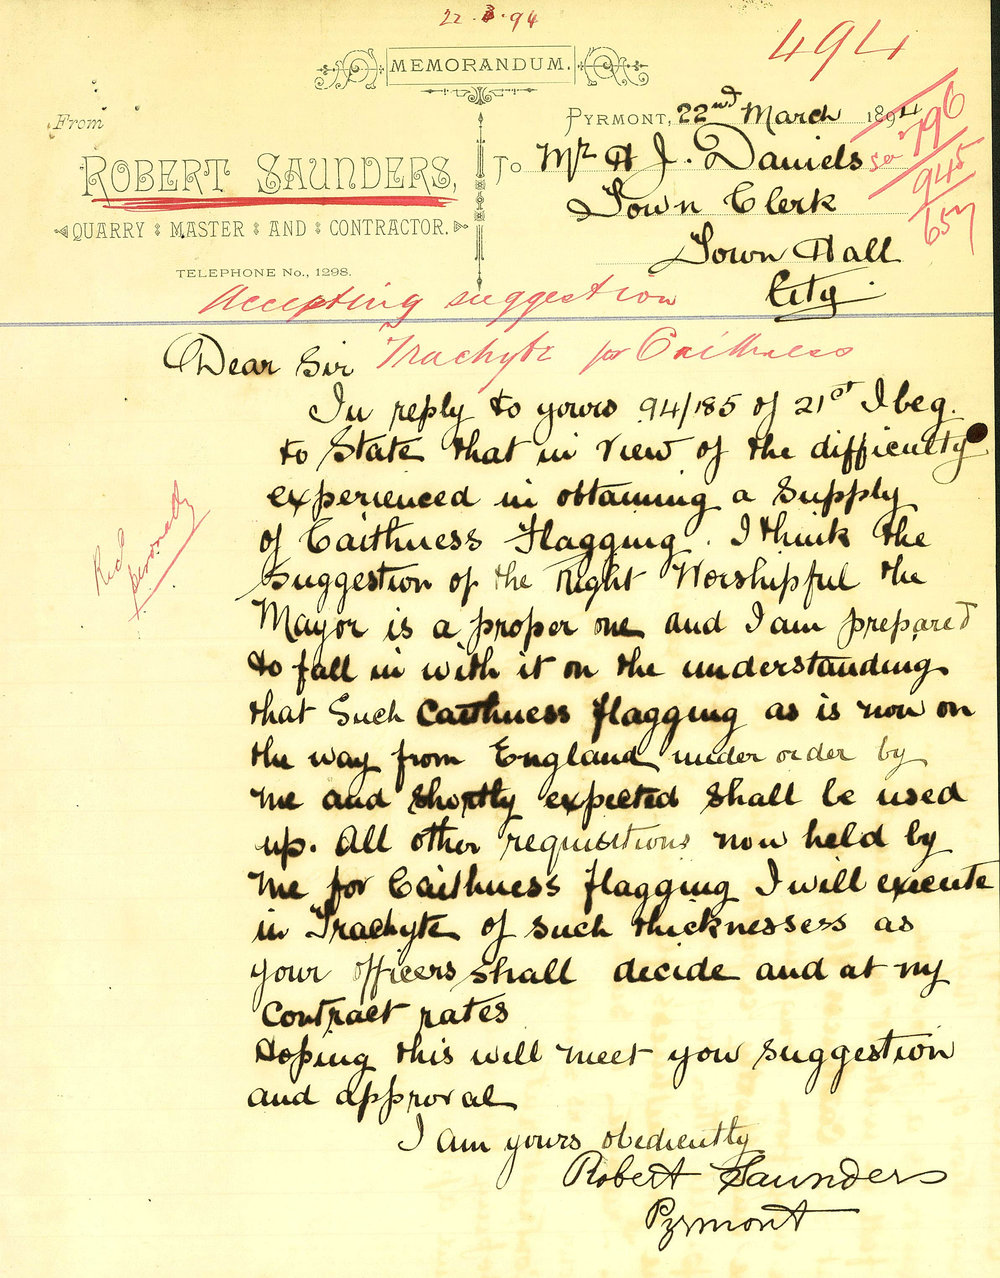 22.3.94
494
MEMORANDUM.
From
PYRMONT, 22nd March 1894
ROBERT SAUNDERS,
QUARRY MASTER AND CONTRACTOR.
TELEPHONE No., 1298.
To Mr H J. Daniels
Town Clerk
Town Hall
City.
796
945
657
Accepting suggestion
Trachyte for Caithness
Dear Sir
In reply to yours 94/185 of 21st I beg
to State that in view of the difficulty
experienced in obtaining a Supply
of Caithness Flagging. I think the
Suggestion of the Right Worshipful the
Mayor is a proper one and I am prepared
to fall in with it on the understanding
that Such Caithness flagging as is now on
the way from England under order by
me and Shortly expected Shall be used
up. All other requisitions now held by
me for Caithness flagging I will execute
in Trachyte of such thicknessess as
your officers shall decide and at my
Contract rates
Hoping this will meet you suggestion
and approval
I am yours obediently
Robert Saunders
Pyrmont